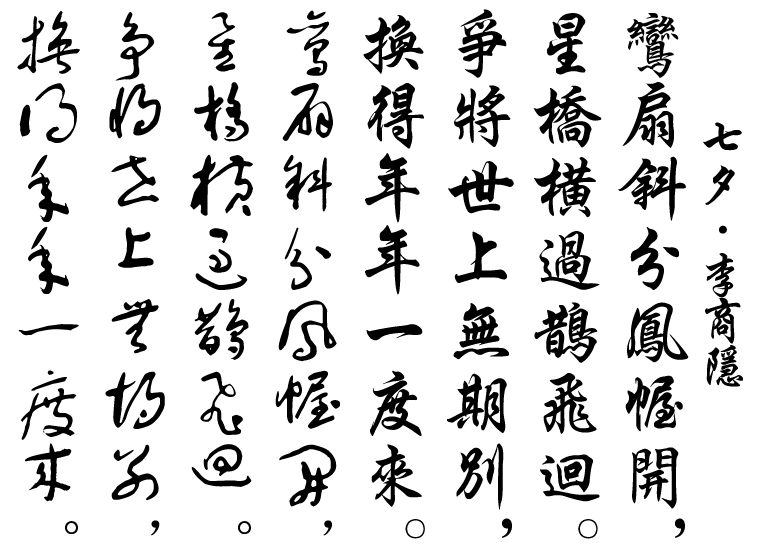 七夕・李商隱
鸞扇斜分鳳幄開，
星橋橫過鵲飛迴。
爭將世上無期別，
換得年年一度來。
鸞扇斜分鳳幄開，
星橋橫過鵲飛迴。
爭將世上無期別，
換得年年一度來。